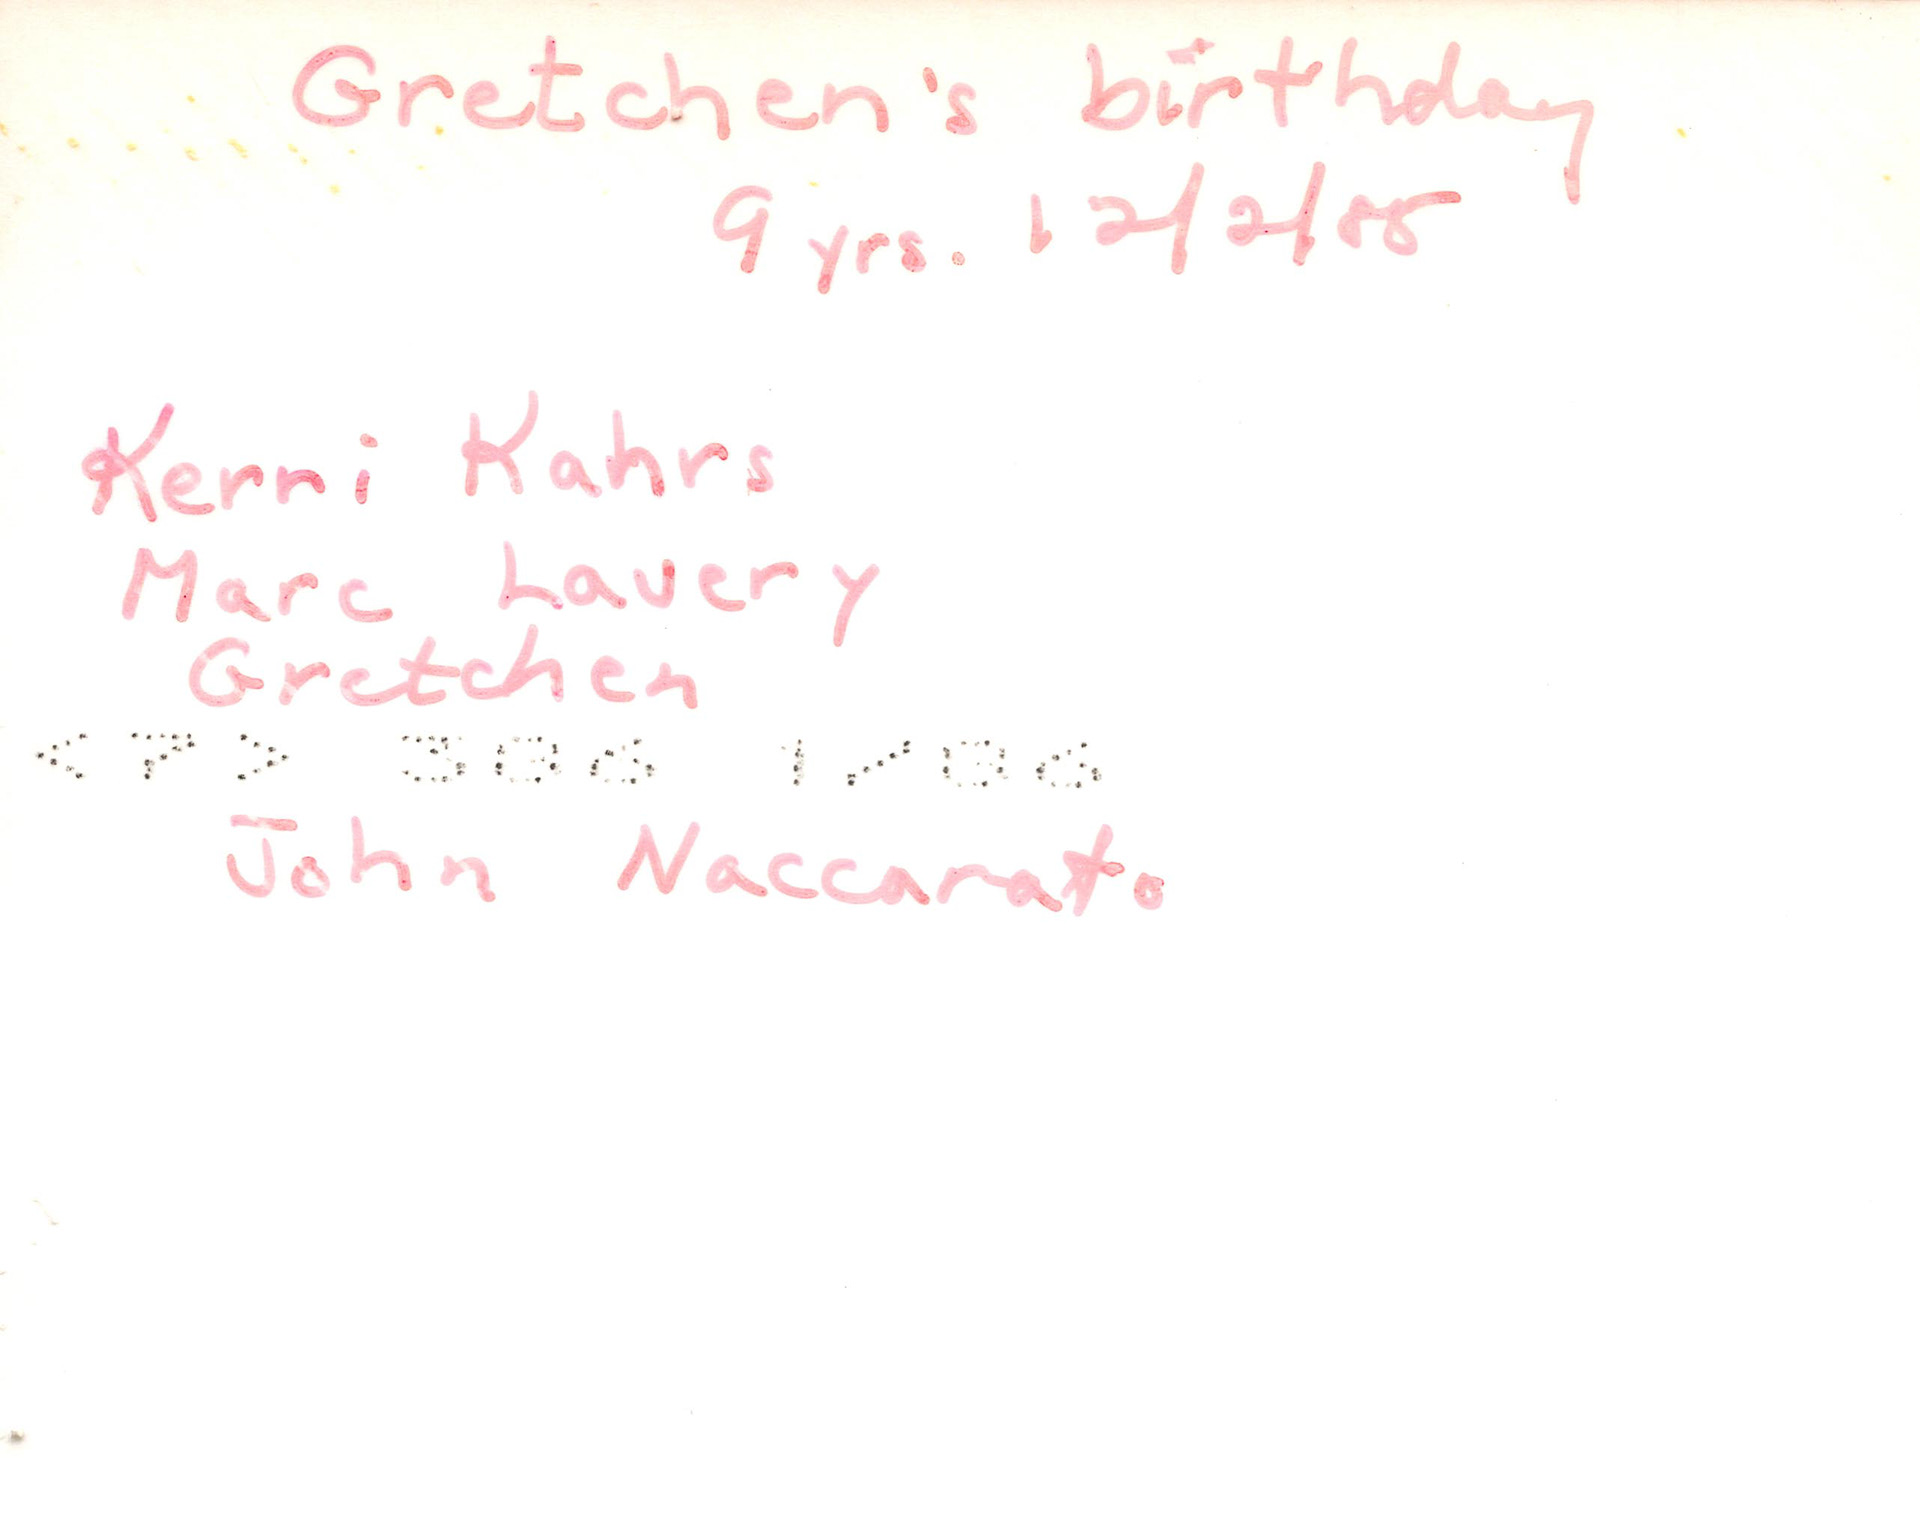 Gretchen's birthday
9 yrs. 12/2/85
Kerri Kahrs
Marc Lavery
Gretchen
<7> 386 1/86
John Naccarato